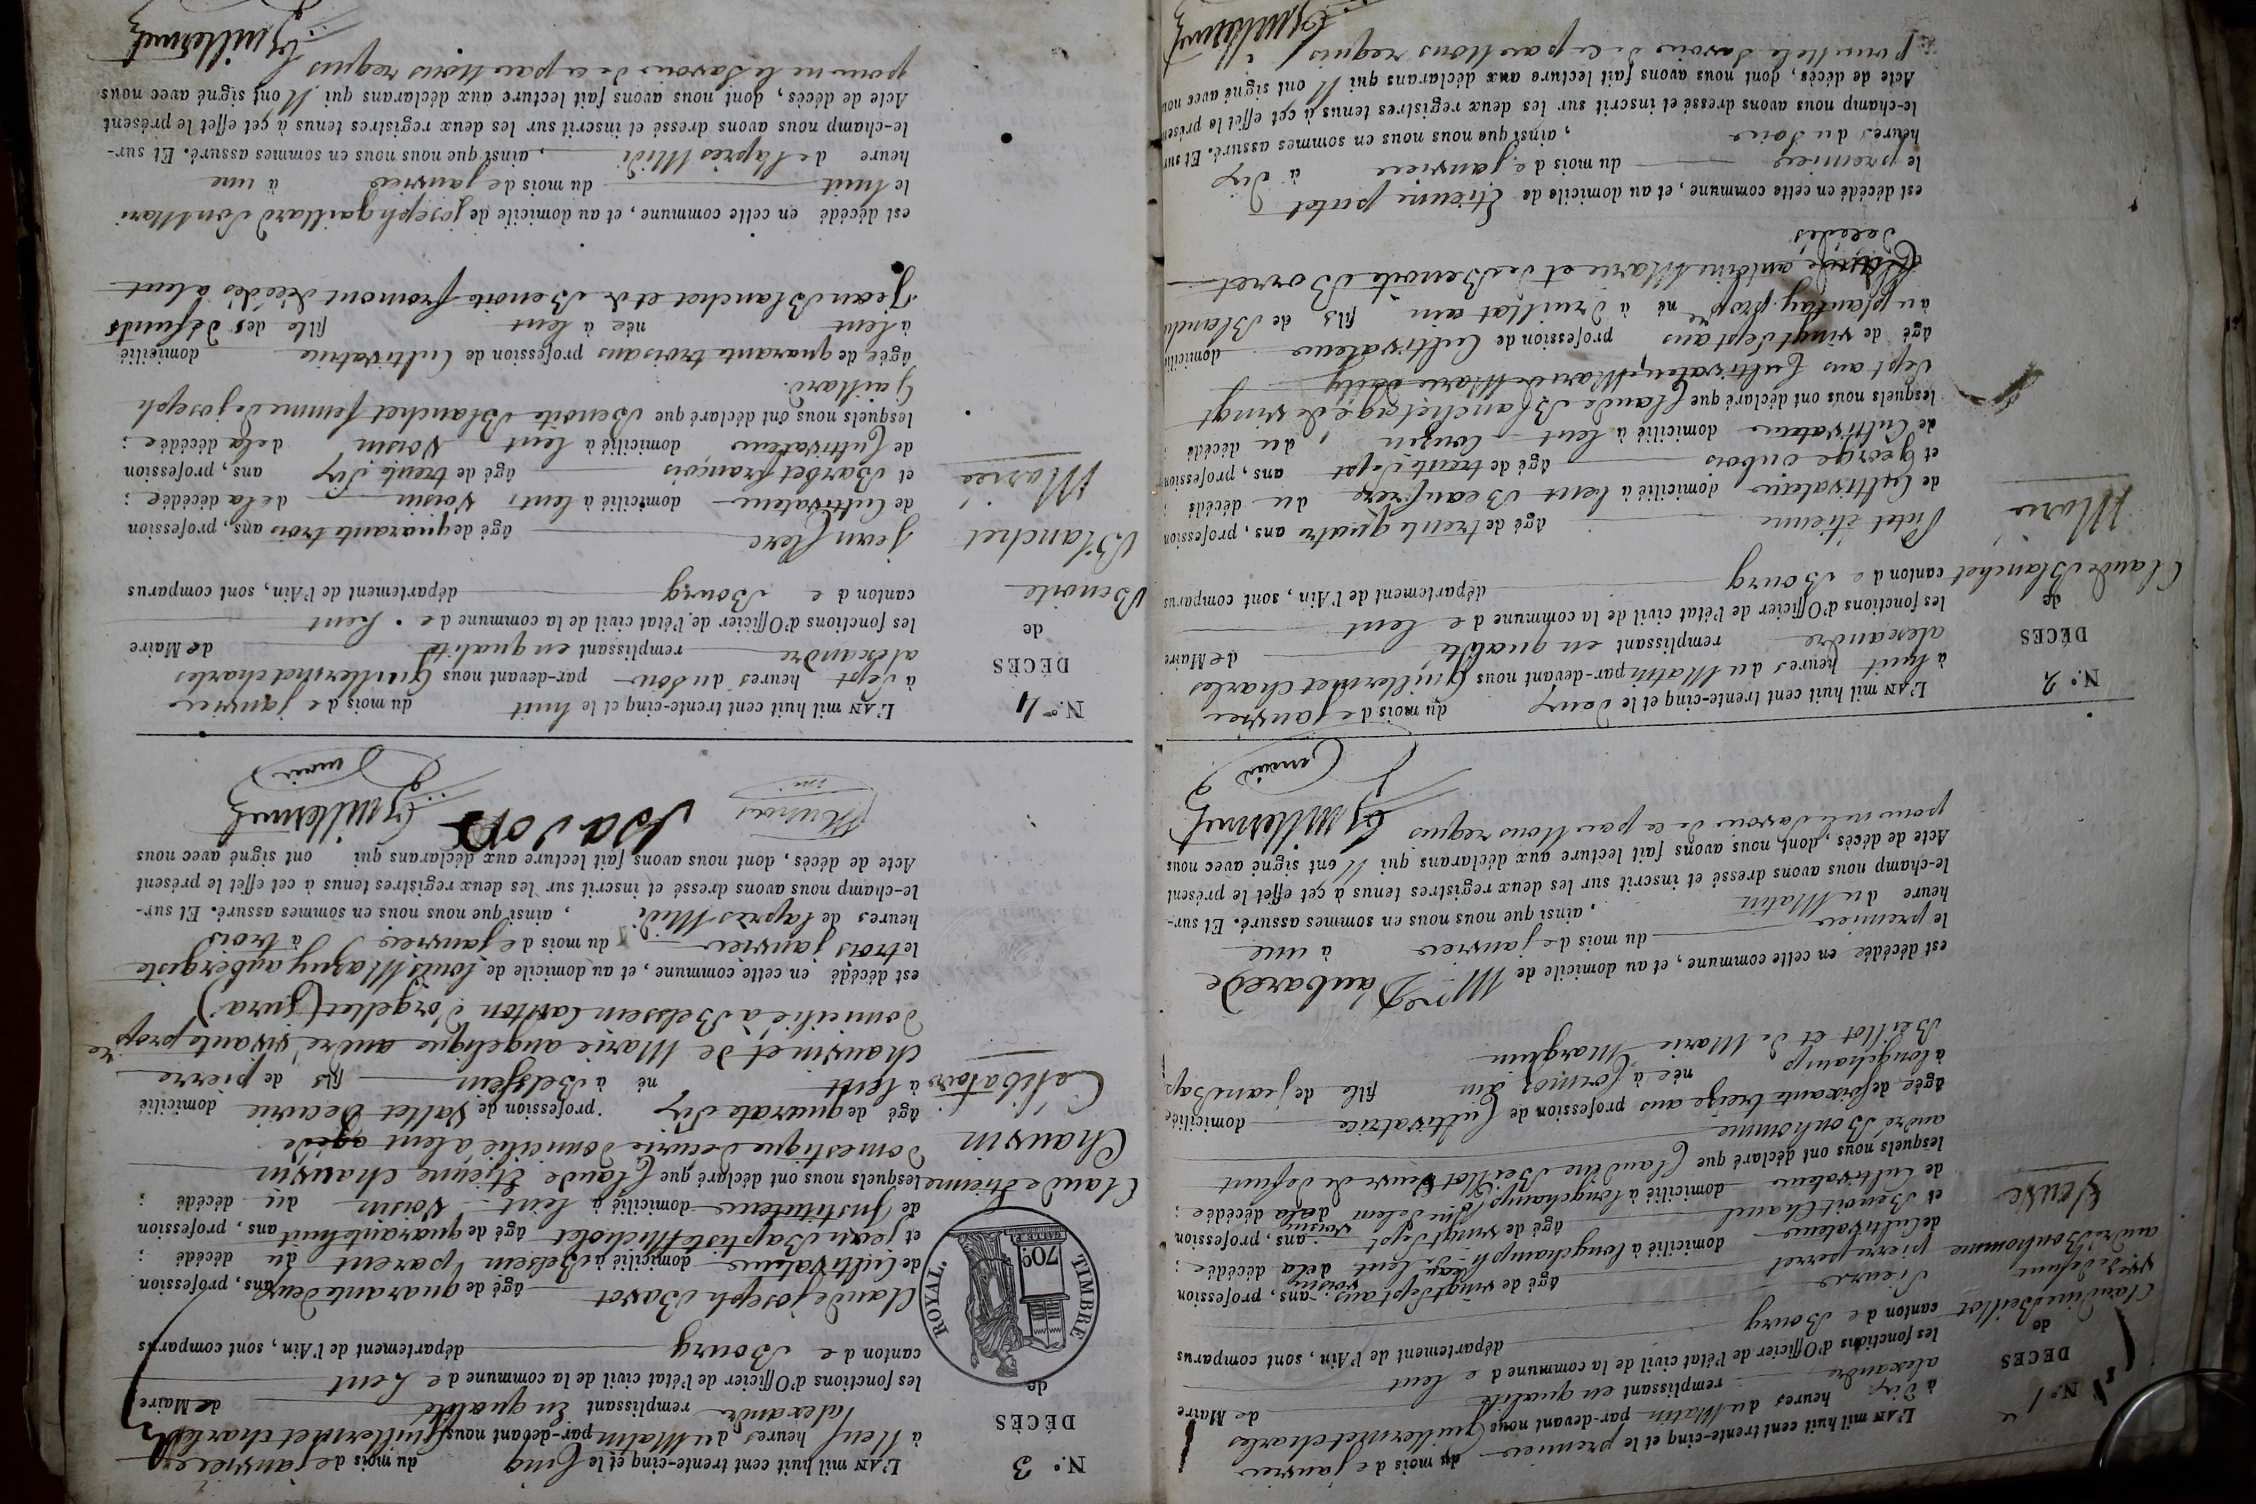 N.° 1
DÉCÈS
de
Claudine Beillot
vve de défunt
andré Bonhomme
Veuve
L'AN mil huit cent trente-cinq et le premier du mois de janvier
à dix heures du Matin par-devant nous Guillermet charles
alexandre remplissant en qualité de Maire
les fonctions d'Officier de l'état civil de la commune de Lent
canton de Bourg département de l'Ain, sont comparus
Sieurs
pierre perret âgé de vingt Sept ans, profession
de Cultivateur domicilié à longchamp Lent voisin de la décédée ;
et Benoit Chanel âgé de vingt Sept ans, profession
de Cultivateur domicilié à longchamp voisin de la décédée ;
lesquels nous ont déclaré que Claudine Beillot Veuve de defunt
andré Bonhomme
âgée de soixante treize ans profession de Cultivatrice domicilié
à longchamp née à Cormoz ain fille de jean Bap
Beillot et de Marie Marguin
est décédée en cette commune, et au domicile de Mr Daubarede
le premier du mois de janvier à une
heure du Matin, ainsi que nous nous en sommes assuré. Et sur-
le-champ nous avons dressé et inscrit sur les deux registres tenus à cet effet le présent
Acte de décès, dont nous avons fait lecture aux déclarans qui N ont signé avec nous
pour ne le Savoir de ce par Nous requis
Guillermet
maire
N.° 2
DÉCÈS
de
Claude Blanchet
Marié
L'AN mil huit cent trente-cinq et le deux du mois de janvier
à huit heures du Matin par-devant nous Guillermet charles
alexandre remplissant en qualité de Maire
les fonctions d'Officier de l'état civil de la commune de Lent
canton de Bourg département de l'Ain, sont comparus
Putet étienne âgé de trente quatre ans, profession
de Cultivateur domicilié à Lent Beaufrère du décédé ;
et George dubois âgé de trente Sept ans, profession
de Cultivateur domicilié à Lent Cousin du décédé ;
lesquels nous ont déclaré que Claude Blanchet age de vingt
Sept ans Cultivateur, Mari de Marie
âgé de vingt Sept ans profession de Cultivateur domicilié
au plantay né à druillat ain fils de Blanch
antoine Marie et de Benoite Borret
décédés
est décédé en cette commune, et au domicile de Etienne putet
le premier du mois de janvier à dix
heures du Soir, ainsi que nous nous en sommes assuré. Et sur
le-champ nous avons dressé et inscrit sur les deux registres tenus à cet effet le présen
Acte de décès, dont nous avons fait lecture aux déclarans qui N ont signé avec nou
pour ne le Savoir de ce par Nous requis
Guillermet
N.° 3
DÉCÈS
de
Claude Etienne
Chauvin
Célibataire
TIMBRE ROYAL.
70c
L'AN mil huit cent trente-cinq et le Cinq du mois de janvier
à Neuf heures du Matin par-devant nous Guillermet charles
alexandre remplissant En qualité de Maire
les fonctions d'Officier de l'état civil de la commune de Lent
canton de Bourg département de l'Ain, sont comparus
Claude joseph Bavot âgé de quarante deux ans, profession
de Cultivateur domicilié à Belsein parent du décédé ;
et jean Baptiste Micholet âgé de quarante huit ans, profession
de Instituteur domicilié à Lent Voisin du décédé ;
lesquels nous ont déclaré que Claude Etienne Chauvin
domestique decurie domicilié à lent agé de
âgé de quarate dix profession de Vallet Decurie domicilié
à Lent né à Belsein fils de pierre
chauvin et de Marie angelique andré vivante propre
domicilié à Belssein Canton d'orgellet (jura)
est décédé en cette commune, et au domicile de louis Mazuy aubergiste
le trois janvier du mois de janvier à trois
heures de l'après Midi, ainsi que nous nous en sommes assuré. Et sur-
le-champ nous avons dressé et inscrit sur les deux registres tenus à cet effet le présent
Acte de décès, dont nous avons fait lecture aux déclarans qui ont signé avec nous
Guillermet
maire
N.° 4
DÉCÈS
de
Benoite
Blanchet
Mariée
L'AN mil huit cent trente-cinq et le huit du mois de janvier
à Sept heures du Soir par-devant nous Guillermet charles
alexandre remplissant en qualité de Maire
les fonctions d'Officier de l'état civil de la commune de Lent
canton de Bourg département de l'Ain, sont comparus
jean Clerc âgé de quarante trois ans, profession
de Cultivateur domicilié à Lent Voisin de la décédée ;
et Barbet françois âgé de trente dix ans, profession
de Cultivateur domicilié à Lent Voisin de la décédée ;
lesquels nous ont déclaré que Benoite Blanchet femme de joseph
Gaillard.
âgée de quarante trois ans profession de Cultivatrice domicilié
à Lent née à Lent fille des défunts
Jean Blanchet et de Benoite fromont décédés à lent
est décédé en cette commune, et au domicile de joseph gaillard Son Mari
le huit du mois de janvier à une
heure de l'après Midi, ainsi que nous nous en sommes assuré. Et sur-
le-champ nous avons dressé et inscrit sur les deux registres tenus à cet effet le présent
Acte de décès, dont nous avons fait lecture aux déclarans qui N ont signé avec nous
pour ne le Savoir de ce par Nous requis
Guillermet